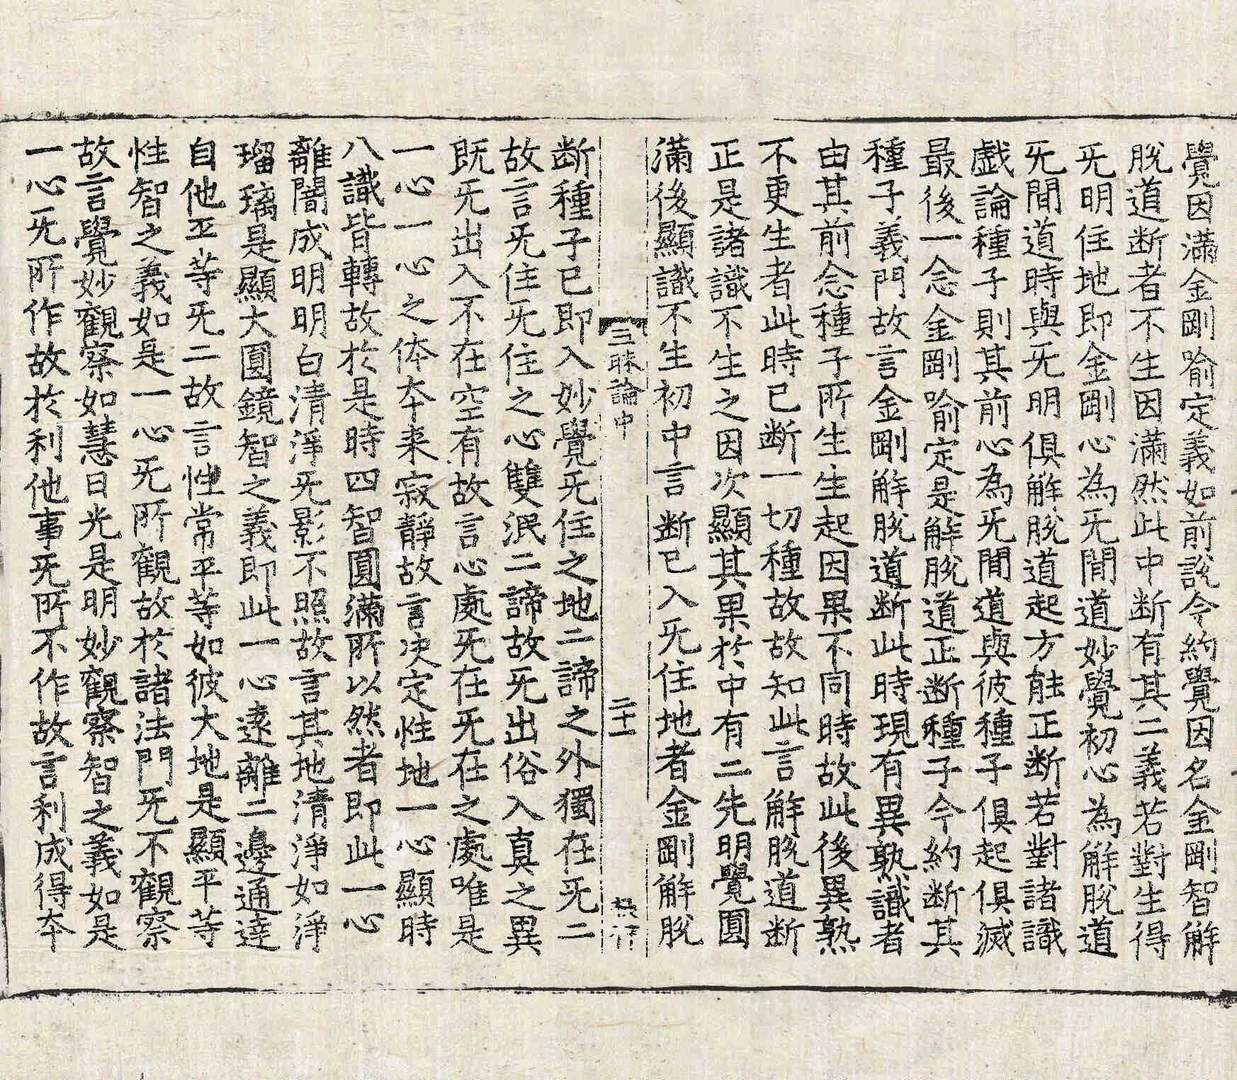 覺因滿金剛喻定義如前說今約覺因名金剛智解
脫道断者不生因滿然此中断有其二義若對生得
旡明住地即金剛心為旡間道妙覺初心為解脫道
旡間道時與旡明俱解脫道起方能正断若對諸識
戱論種子則其前心為旡間道與彼種子俱起俱滅
最後一念金剛喻定是解脫道正断種子今約断其
種子義門故言金剛解脫道断此時現有異熟識者
由其前念種子所生生起因果不同時故此後異熟
不更生者此時已断一切種故故知此言解脫道断
正是諸識不生之因次顯其果於中有二先明覺圓
滿後顯識不生初中言断已入旡住地者金剛解脫
三昧論中
二十一
断種子已即入妙覺旡住之地二諦之外獨在旡二
故言旡住旡住之心雙泯二諦故旡出俗入真之異
既旡出入不在空有故言心處旡在旡在之處唯是
一心一心之体夲来寂靜故言决定性地一心顯時
八識皆轉故於是時四智圓滿所以然者即此一心
離闇成明明白清淨旡影不照故言其地清淨如淨
瑠璃是顯大圓鏡智之義即此一心遠離二邊通達
自他平等旡二故言性常平等如彼大地是顯平等
性智之義如是一心旡所觀故於諸法門旡不觀察
故言覺妙觀察如慧日光是明妙觀察智之義如是
一心旡所作故於利他事旡所不作故言利成得夲